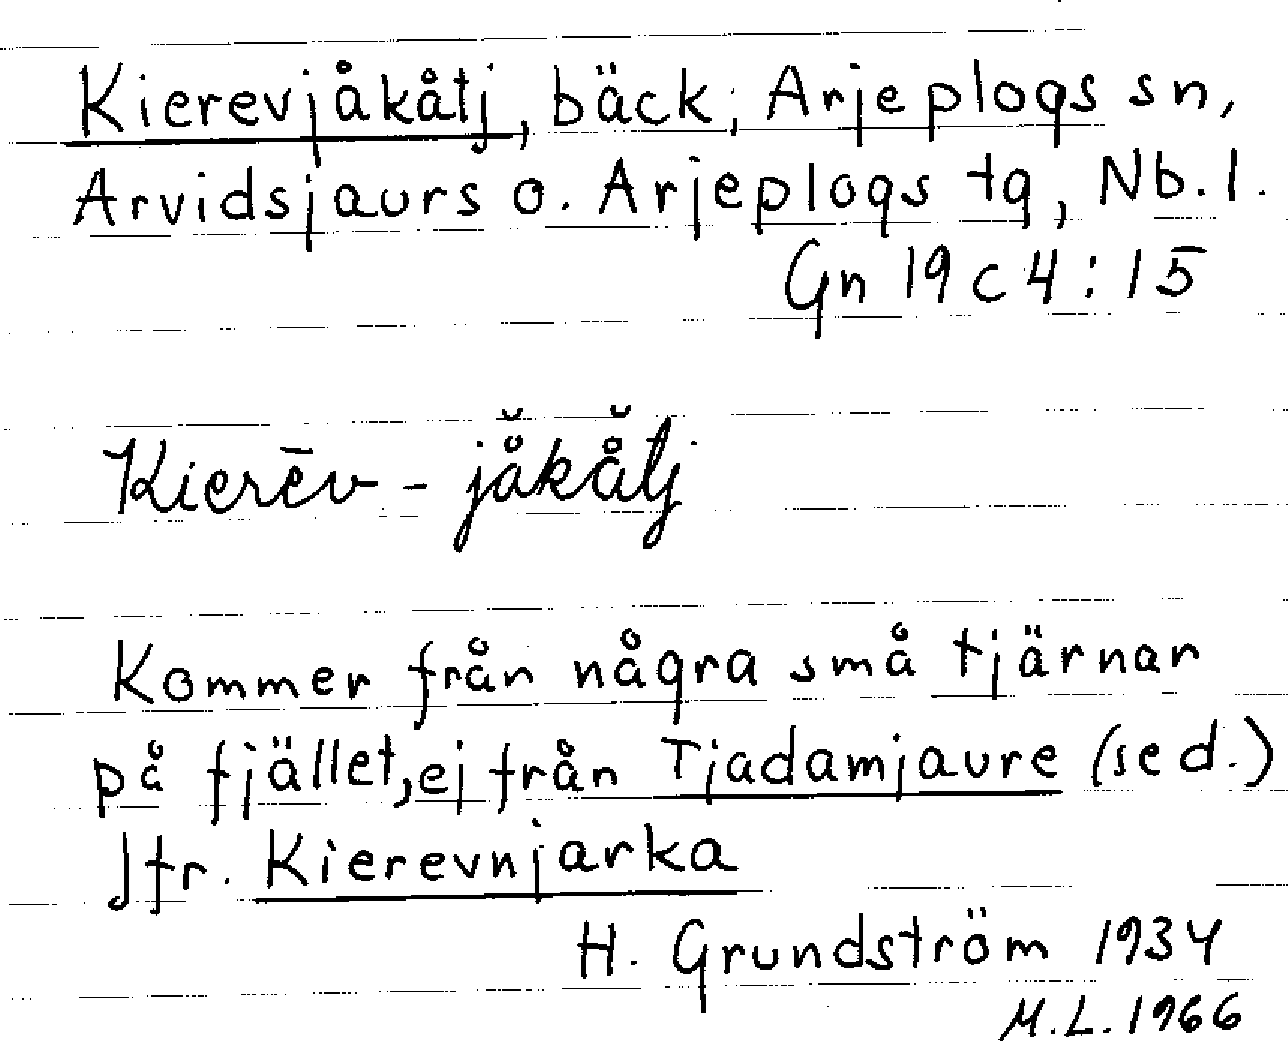 Kierevjåkåtj, bäck; Arjeplogs sn,
Arvidsjaurs o. Arjeplogs tg, Nb. l.
Gn 19 c 4 : 15
Kierēv - jå̆kå̆tj
Kommer från några små tjärnar
på fjället, ej från Tjadamjaure (se d.)
Jfr. Kierevnjarka
H. Grundström 1934
M.L. 1966